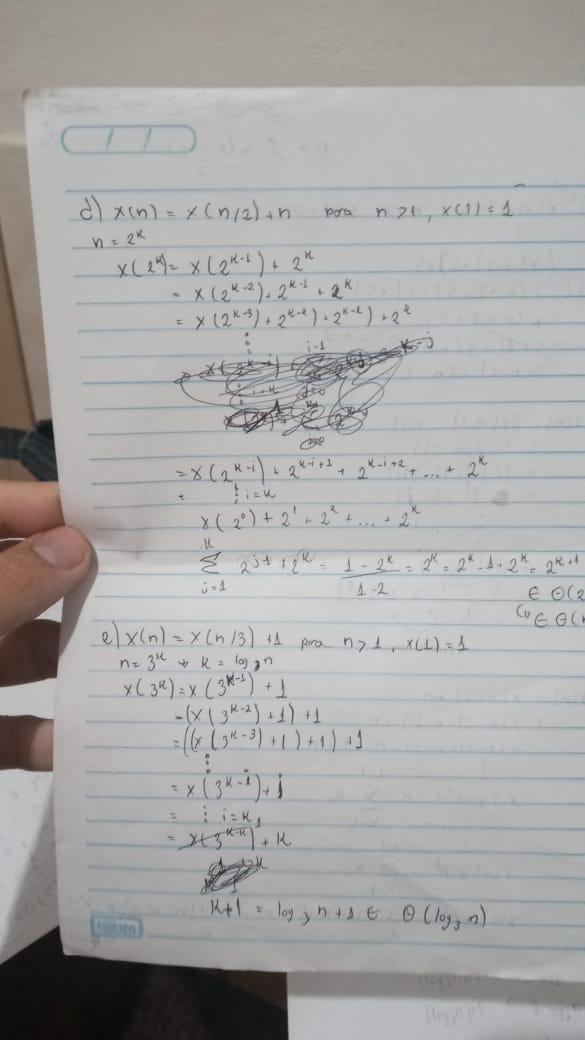 d) x(n) = x(n/2) + n para n > 1, x(1) = 1
n = 2^k
x(2^k) = x(2^{k-1}) + 2^k
= x(2^{k-2}) + 2^{k-1} + 2^k
= x(2^{k-3}) + 2^{k-2}) + 2^{k-1}) + 2^k
⋮
= x(2^{k-i}) + 2^{k-i+1} + 2^{k-i+2} + ... + 2^k
⋮ i = k
x(2^0) + 2^1 + 2^2 + ... + 2^k
k
Σ 2^{j-1} + 2^k = (1 - 2^k)/(1 - 2) = 2^k = 2^k - 1 + 2^k = 2^{k+1}
j=1
∈ Θ(2
∈ Θ(n
e) x(n) = x(n/3) + 1 para n > 1, x(1) = 1
n = 3^k → k = log_3 n
x(3^k) = x(3^{k-1}) + 1
= (x(3^{k-2}) + 1) + 1
= ((x(3^{k-3}) + 1) + 1) + 1
⋮
= x(3^{k-i}) + i
= ⋮ i = k
= x(3^{k-k}) + k
k+1 = log_3 n + 1 ∈ Θ(log_3 n)
tilibra